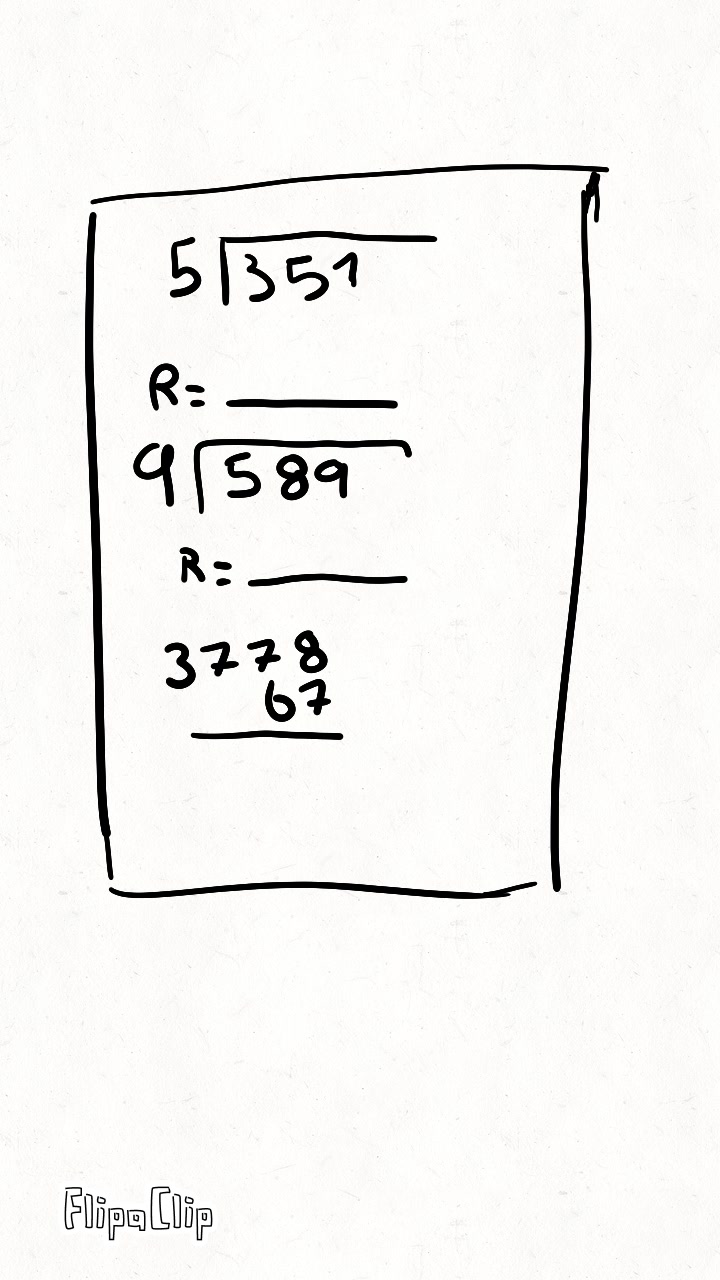 5 351
R=
9 589
R=
3778
67
FlipaClip